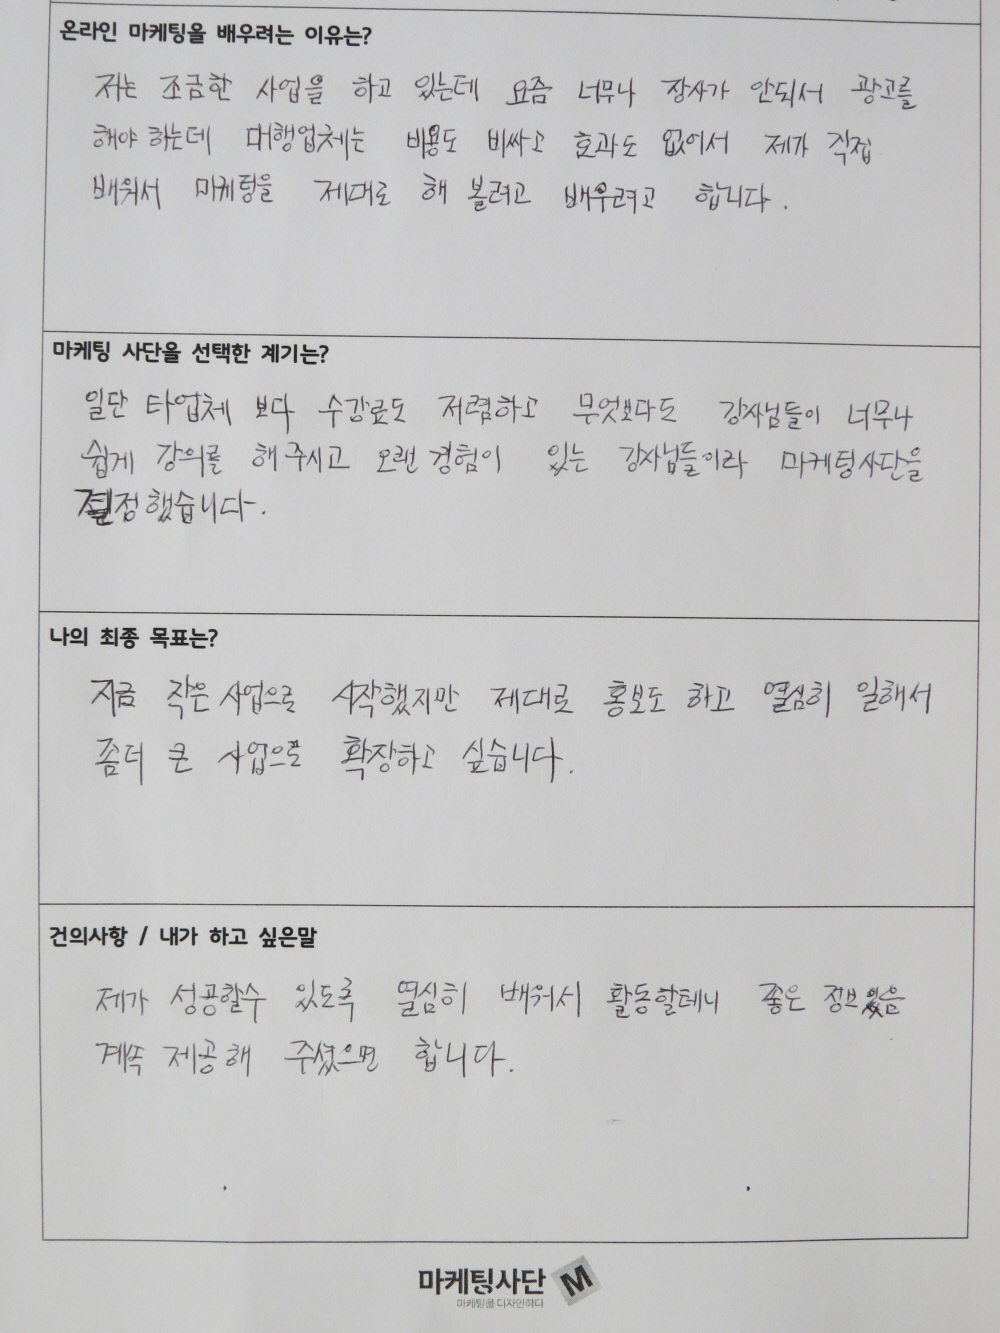 온라인 마케팅을 배우려는 이유는?
저는 조금한 사업을 하고 있는데 요즘 너무나 장사가 안되서 광고를
해야 하는데 대행업체는 비용도 비싸고 효과도 없어서 제가 직접
배워서 마케팅을 제대로 해 볼려고 배우려고 합니다.
마케팅 사단을 선택한 계기는?
일단 타업체 보다 수강료도 저렴하고 무엇보다도 강사님들이 너무나
쉽게 강의를 해 주시고 오랜 경험이 있는 강사님들이라 마케팅사단을
결정했습니다.
나의 최종 목표는?
지금 작은 사업으로 시작했지만 제대로 홍보도 하고 열심히 일해서
좀더 큰 사업으로 확장하고 싶습니다.
건의사항 / 내가 하고 싶은말
제가 성공할수 있도록 열심히 배워서 활동할테니 좋은
계속 제공해 주셨으면 합니다.
마케팅사단 M
마케팅을 디자인하다